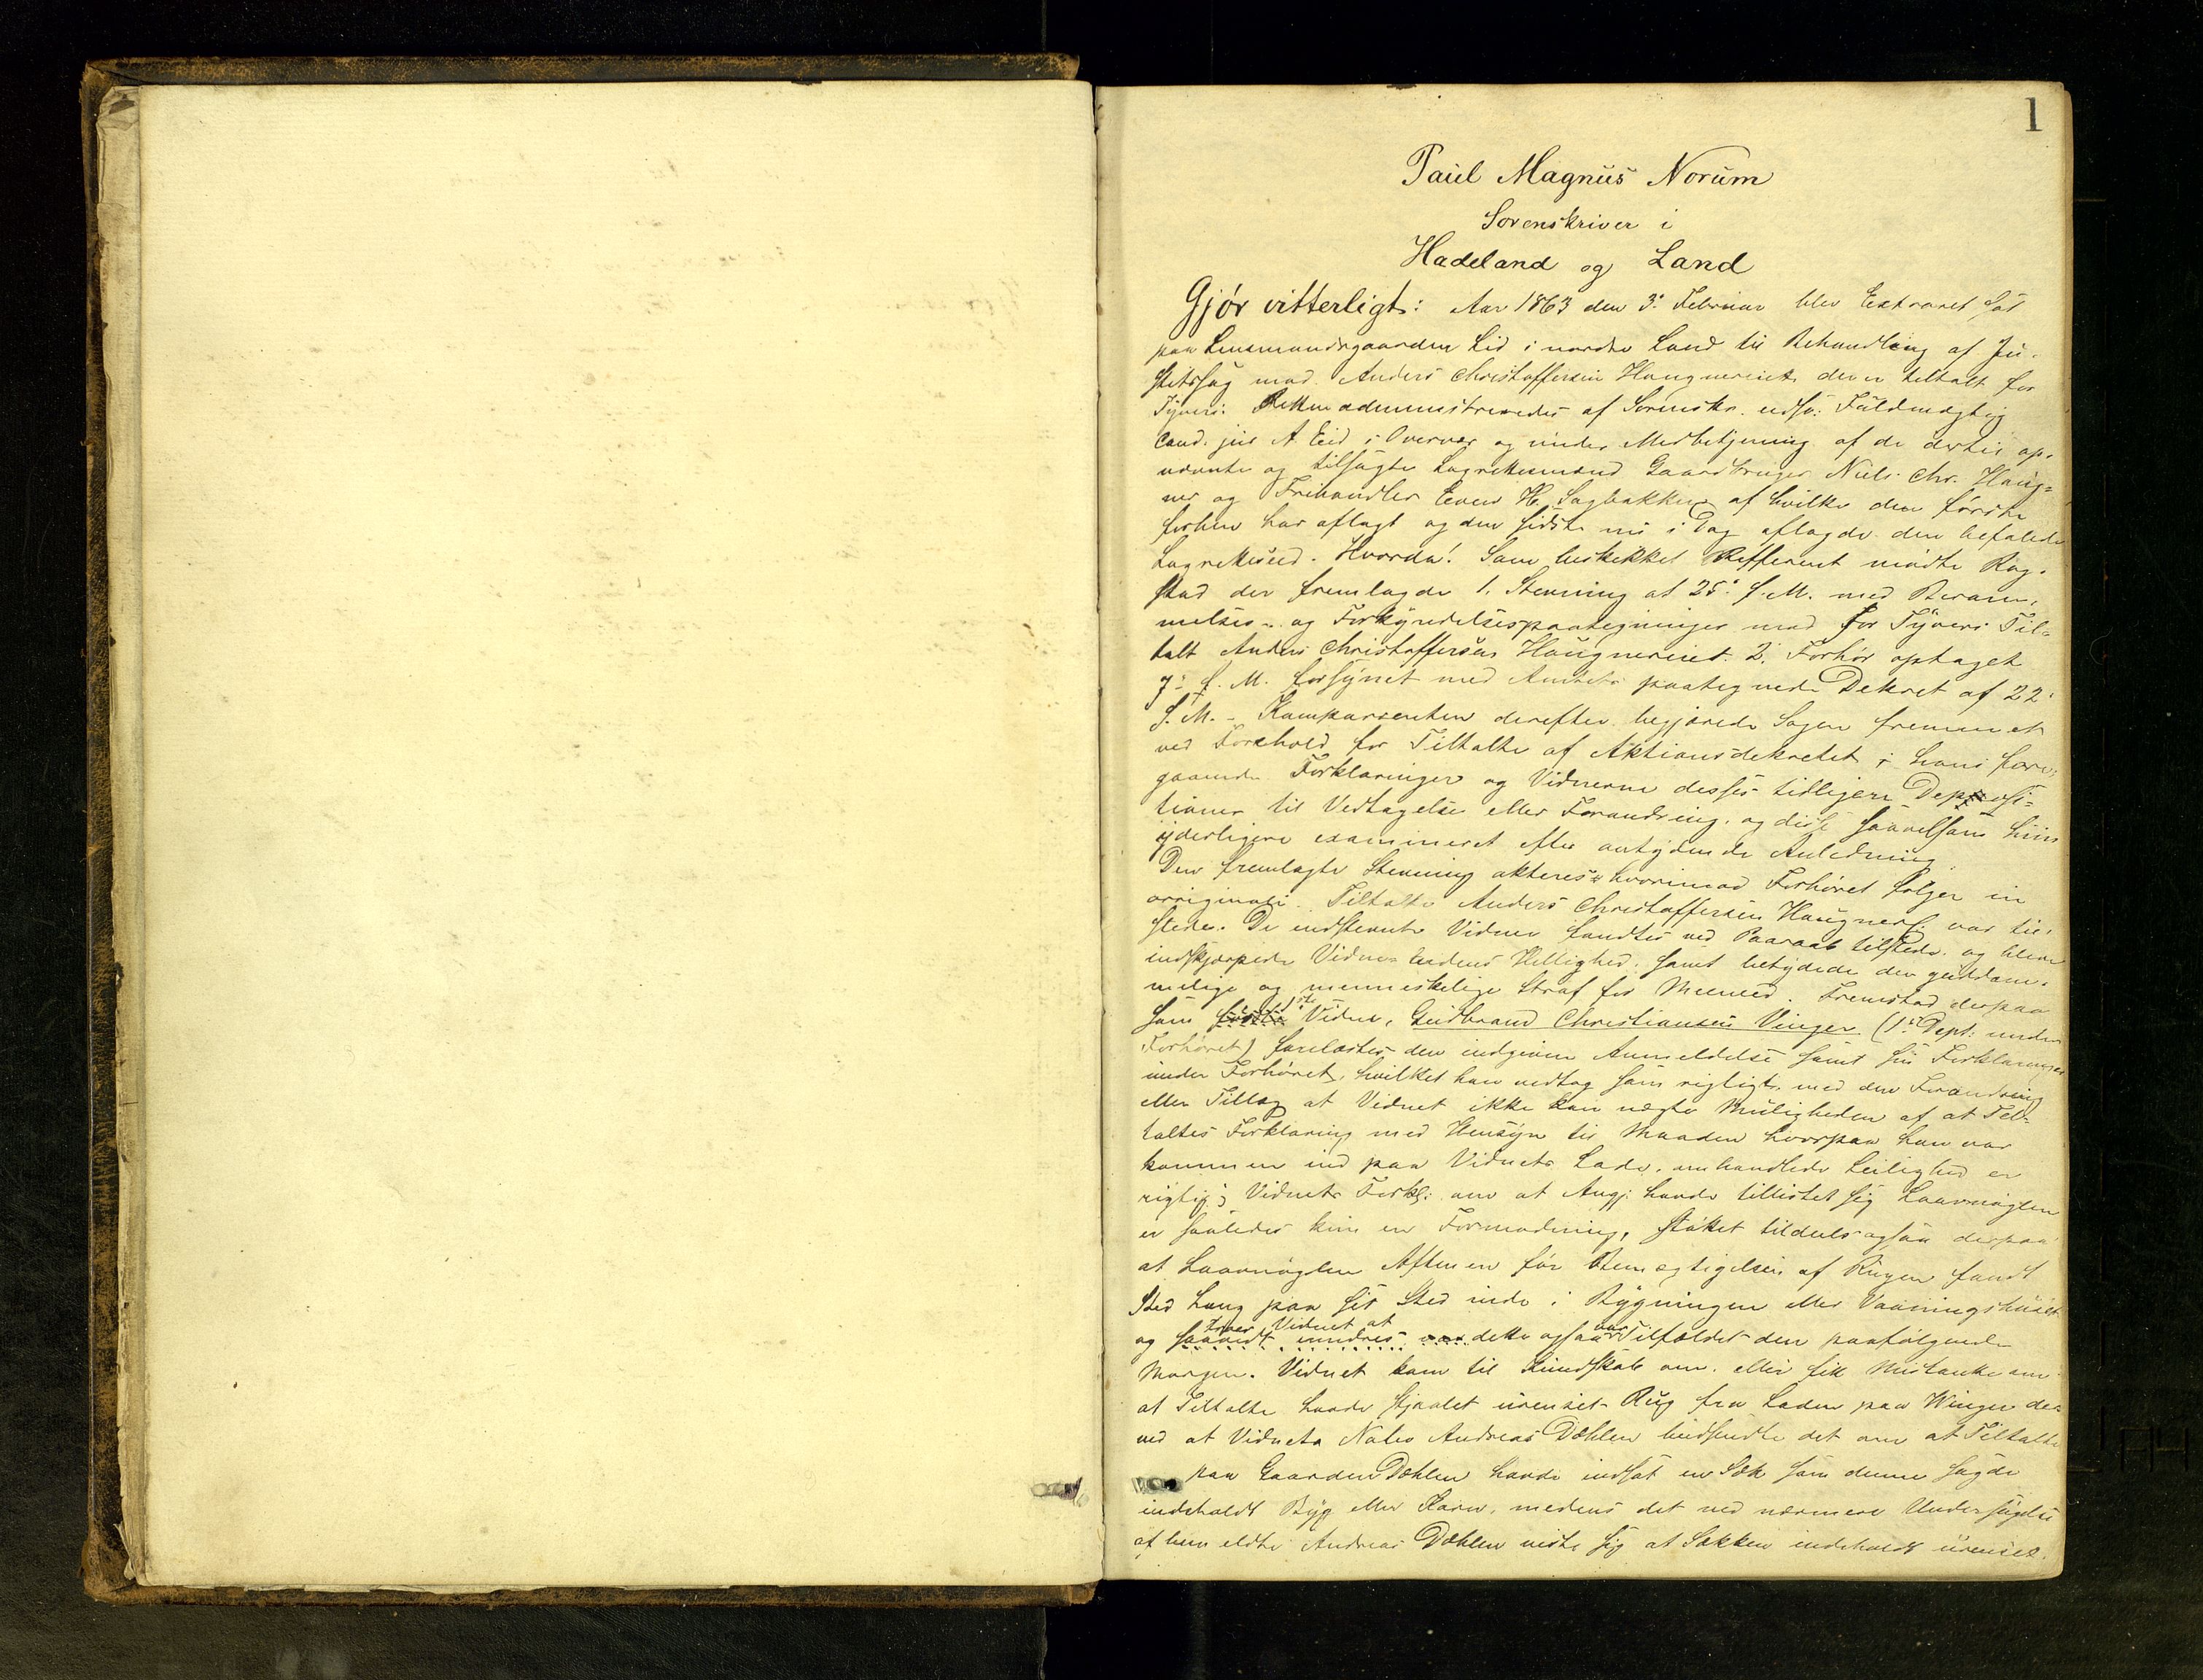 1
Paul Magnus Norum
Sorenskriver i
Hadeland og Land
Gjør vitterligt: Aar 1863 den 3. Februar blev Extraret sat
paa Lensmandsgaarden Lid i nordre Land til Behandling af Ju-
stitssag mod Anders Christoffersen Haugnereiet der er tiltalt for
Tyveri. Retten administreredes af Sorenskr. udsv: Fuldmægtig
Cand. jur A. Eid i Overvær og under Medbetjening af de dertil op-
nævnte og tilsagte Lagrettesmænd Gaardbruger Niels Chr. Haug-
ner og Frihandler Even H. Sagbakken af hvilke den første
forhen har aflagt og den sidste nu i Dag aflagde den befalede
Lagrettesed. Hvorda! Som beskikket Refferent mødte Rag-
stad der fremlagde 1. Stevning af 25. f. M. med Beram-
melses- og Forkyndelsespaategninger mod for Tyveri Til-
talt Anders Christoffersen Haugnereiet. 2. Forhør optaget
7. f. M. forsynet med Amtets paategnede Dekret af 22.
s. M. - Komparenten derefter begjærede Sagen fremmet
ved Forehold for Tiltalte af Aktionsdekretet, hans fore-
gaaende Forklaringer og Vidnerne desses tidligere Deposi-
tioner til Vedtagelse eller Forandring, og disse saavelsom hiin
yderligere examineret efter antydende Anledning.
Den fremlagte Stevning akteres hvorimod Forhøret følger in
originali. Tiltalte Anders Christoffersen Haugnerei. var til-
stede. De indstevnte Vidner fandtes ved Paaraab tilstede og bleve
indskjærpede Vidne Eedens Hellighed samt betydede den guddom-
melige og menneskelige Straf for Meneed. Fremstod derpaa
som første 1ste Vidne, Gudbrand Christiansen Vinger (1. Dept. under
Forhøret) forelæstes den indgivne Anmeldelse samt sin Forklaringer
under Forhøret, hvilket han vedtog som rigtigt, med den Forandring
eller Tillæg at Vidnet ikke kan nægte Muligheden af at Til-
taltes Forklaring med Hensyn til Maaden hvorpaa han var
kommen ind paa Vidnets Lade, omhandlede Leilighed er
rigtig; Vidnets Forkl: om at Angj. havde tillistet sig Laavenøglen
er saaledes kun en Formodning, støttet tildels ogsaa derpaa
at Laavenøglen Aftenen før Bemægtigelsen af Rugen fandt
Sted hang paa sit Sted inde i Bygningen eller Vaaningshuset
og saavidt mindes troer Vidnet at var dette ogsaa var Tilfældet den paafølgende
Morgen. Vidnet kom til Kundskab om, eller fik Mistanke om
at Tiltalte havde stjaalet urenset Rug fra Laden paa Winger der-
ved at Vidnets Nabo Andreas Dæhlen budsendte det om at Tiltalte
paa Gaarden Dæhlen havde indsat en Sæk som denne sagde
indeholdt Byg eller Korn, medens det ved nærmere Undersøgelse
af bem eldte Andreas Dæhlen viste sig at Sækken indeholdt urenset